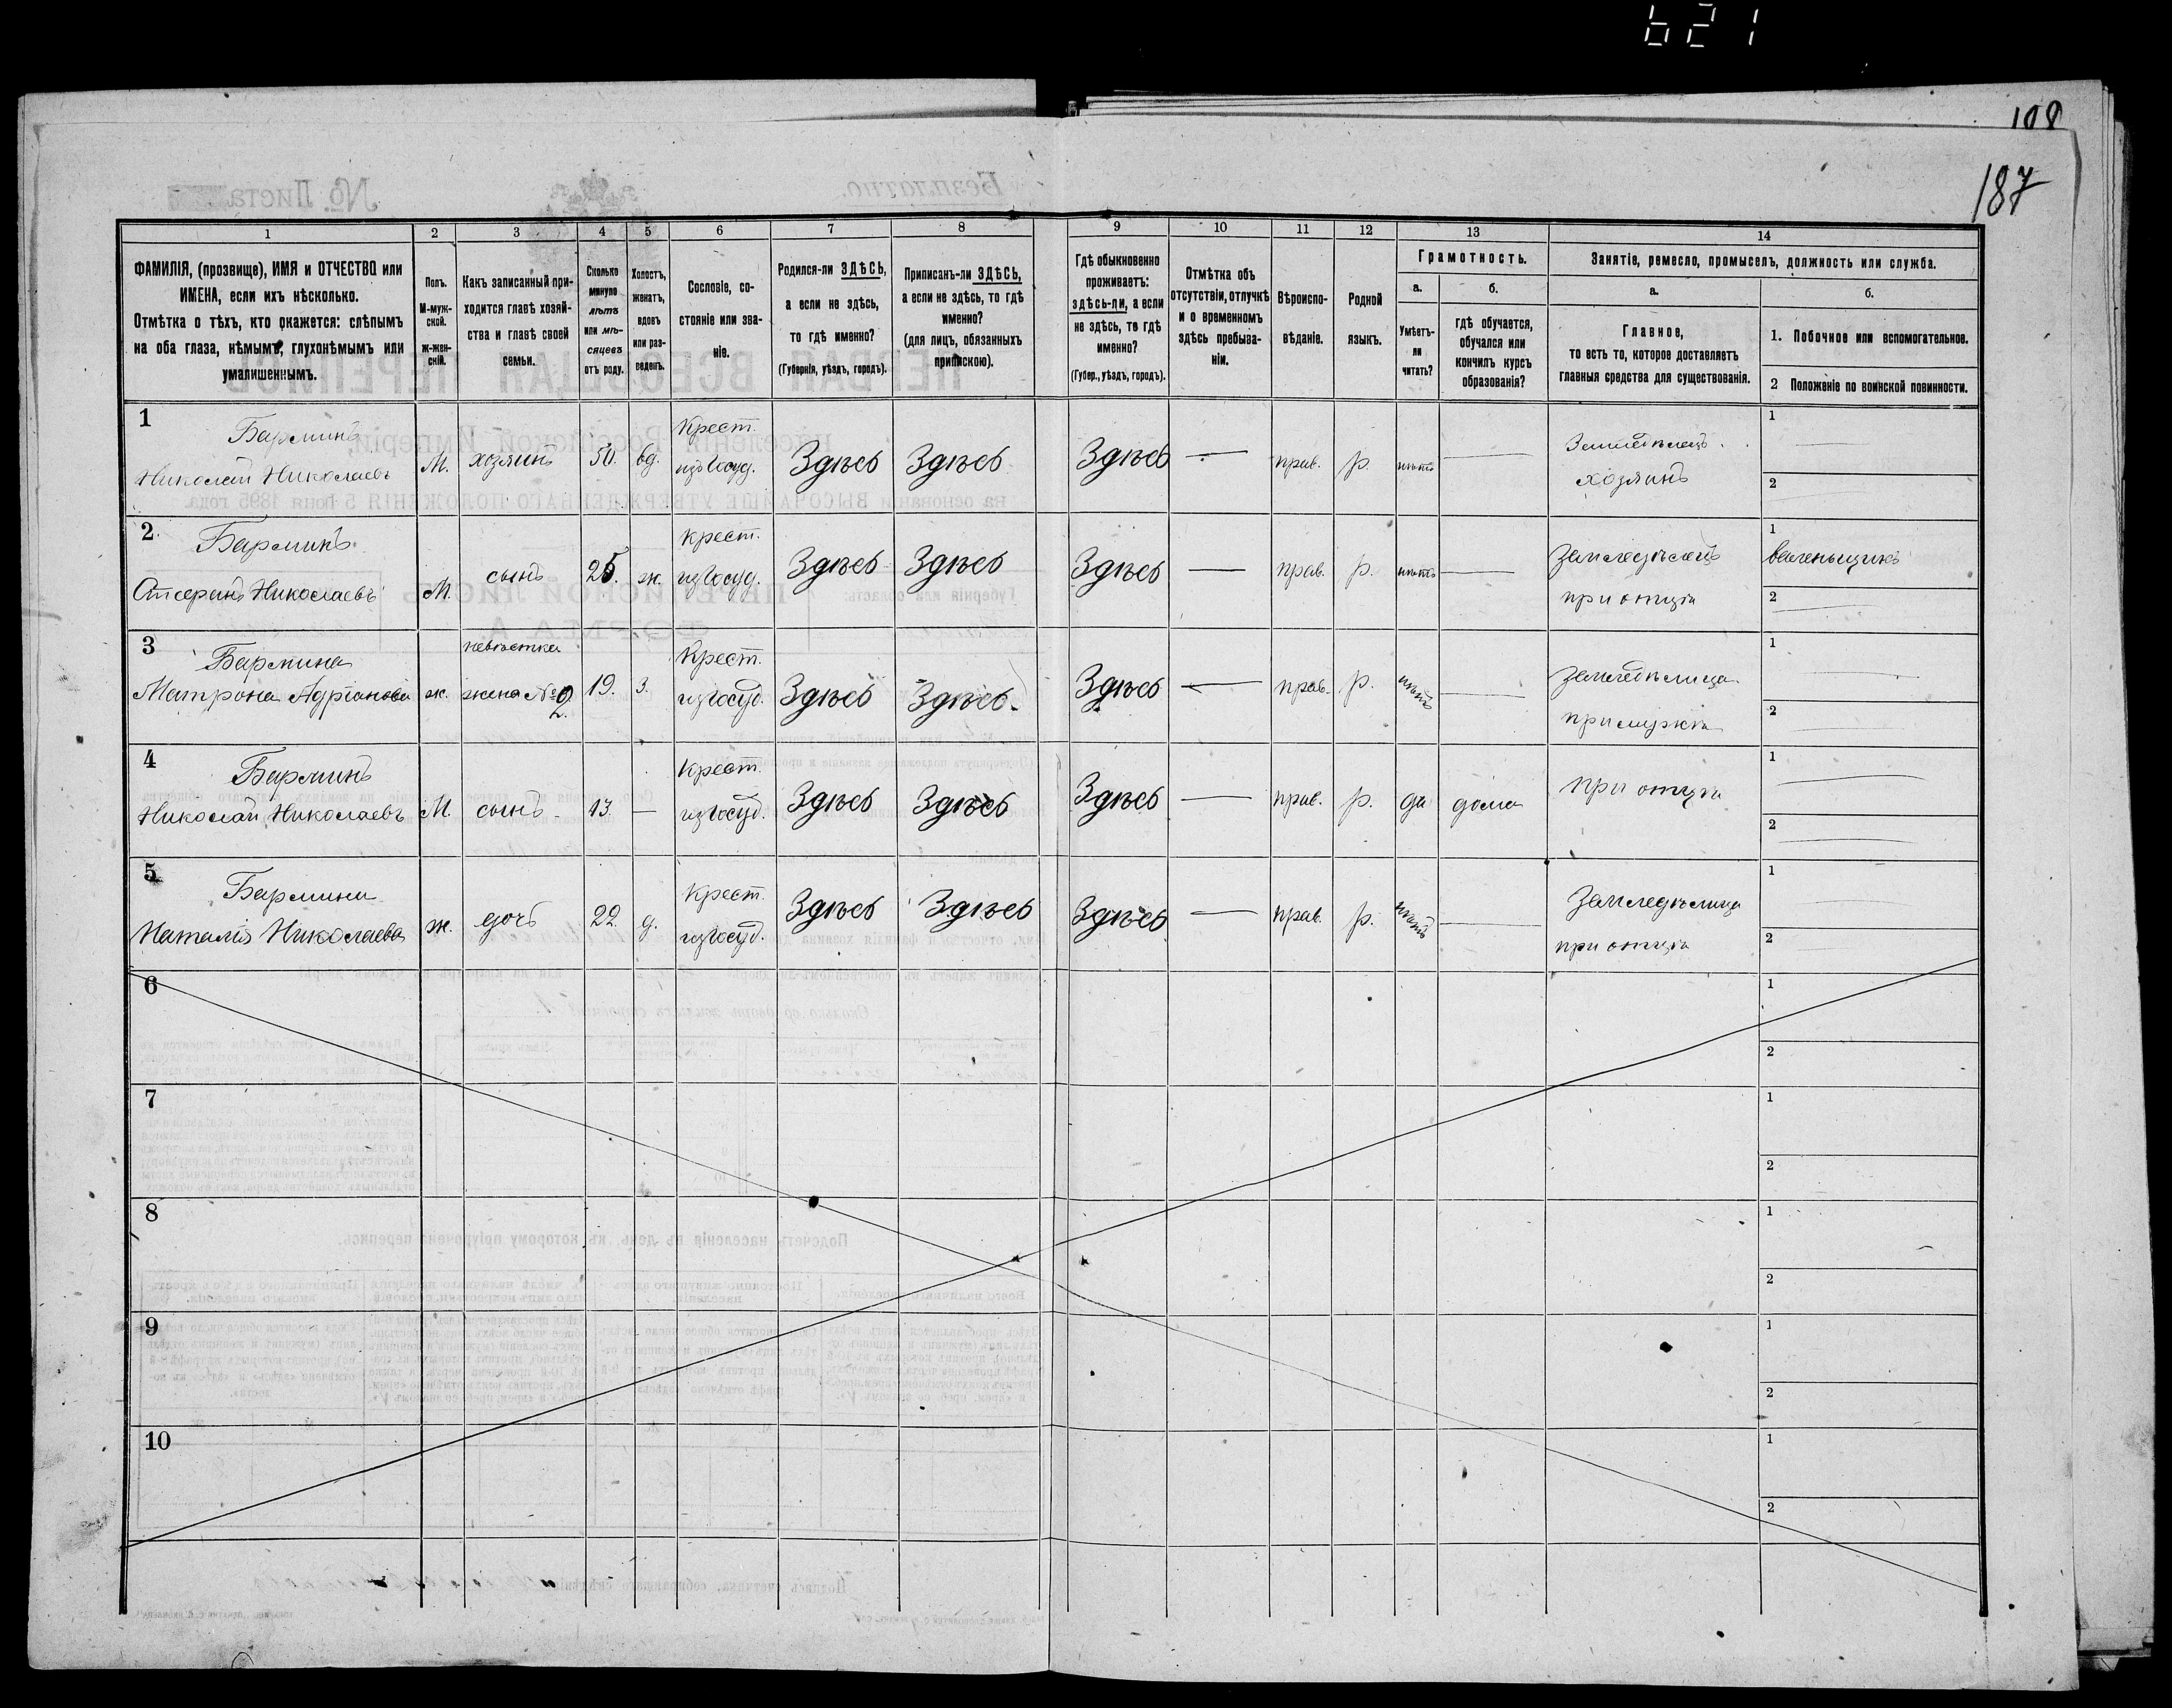 621
108
187
1
2
3
4
5
6
7
8
9
10
11
12
13
14
ФАМИЛІЯ, (прозвище), ИМЯ и ОТЧЕСТВО или
ИМЕНА, если ихъ нѣсколько.
Отмѣтка о тѣхъ, кто окажется: слѣпымъ
на оба глаза, нѣмымъ, глухонѣмымъ или
умалишеннымъ.
Полъ.
М-муж-
ской.
ж-жен-
скій.
Какъ записанный при-
ходится главѣ хозяй-
ства и главѣ своей
семьи.
Сколько
минуло
лѣтъ
или мѣ-
сяцевъ
отъ роду.
Холостъ,
женатъ,
вдовъ
или раз-
веденъ.
Сословіе, со-
стояніе или зва-
ніе.
Родился-ли ЗДѢСЬ,
а если не здѣсь,
то гдѣ именно?
(Губернія, уѣздъ, городъ).
Приписанъ-ли ЗДѢСЬ,
а если не здѣсь, то гдѣ
именно?
(для лицъ, обязанныхъ
припискою).
Гдѣ обыкновенно
проживаетъ:
здѣсь-ли, а если
не здѣсь, то гдѣ
именно?
(Губер., уѣздъ, городъ).
Отмѣтка объ
отсутствіи, отлучкѣ
и о временномъ
здѣсь пребыва-
ніи.
Вѣроиспо-
вѣданіе.
Родной
языкъ.
Грамотность.
а.
Умѣетъ-
ли
читать?
б.
гдѣ обучается,
обучался или
кончилъ курсъ
образованія?
Занятіе, ремесло, промыселъ, должность или служба.
а.
Главное,
то есть то, которое доставляетъ
главныя средства для существованія.
б.
1. Побочное или вспомогательное.
2 Положеніе по воинской повинности.
1
Барминъ
Николай Николаевъ
М. хозяинъ 50. вд.
Крест.
изъ госуд.
Здѣсь Здѣсь Здѣсь — прав. р. нѣтъ —
Земледѣлецъ.
хозяинъ
1
2
2
Барминъ
Николаевъ
М. сынъ 25. ж.
крест.
изъ госуд.
Здѣсь Здѣсь Здѣсь — прав. р. нѣтъ —
Земледѣлецъ
при отцѣ
1
валеньщикъ
2
3
Бармина
Матрона Адріанова
ж.
невѣстка
жена № 2.
19. З.
Крест.
изъ госуд.
Здѣсь Здѣсь. Здѣсь — прав. р. нѣтъ —
Земледѣлица
при мужѣ
1
2
4
Барминъ
Николай Николаевъ
М. сынъ 13. —
Крест.
изъ госуд.
Здѣсь Здѣсь Здѣсь — прав. р. да дома
при отцѣ
1
2
5
Бармина
Наталія Николаева
ж. дочь 22. д.
Крест.
изъ госуд.
Здѣсь Здѣсь Здѣсь — прав. р. нѣтъ —
Земледѣлица
при отцѣ
1
2
6
1
2
7
1
2
8
1
2
9
1
2
10
1
2